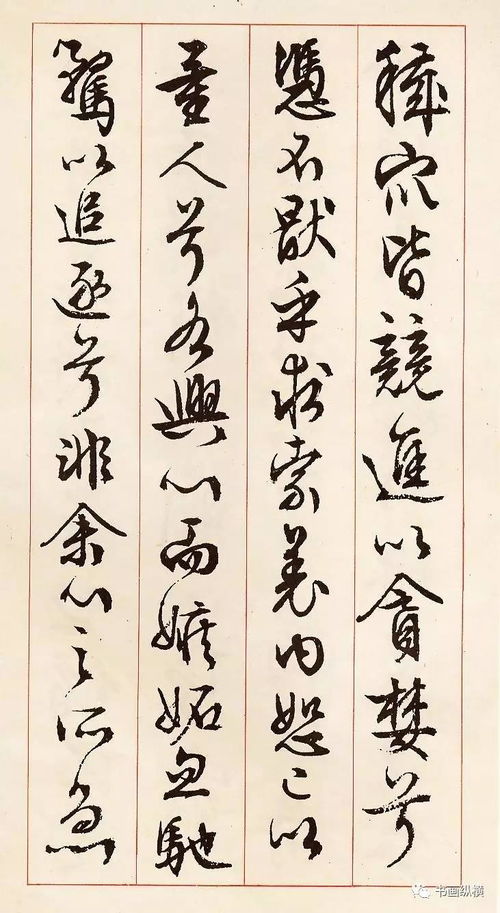 穢眾皆競進以貪婪兮
憑不猒乎求索羌内恕己以
量人兮各興心而嫉妬忽馳
騖以追逐兮非余心之所急
书画纵横